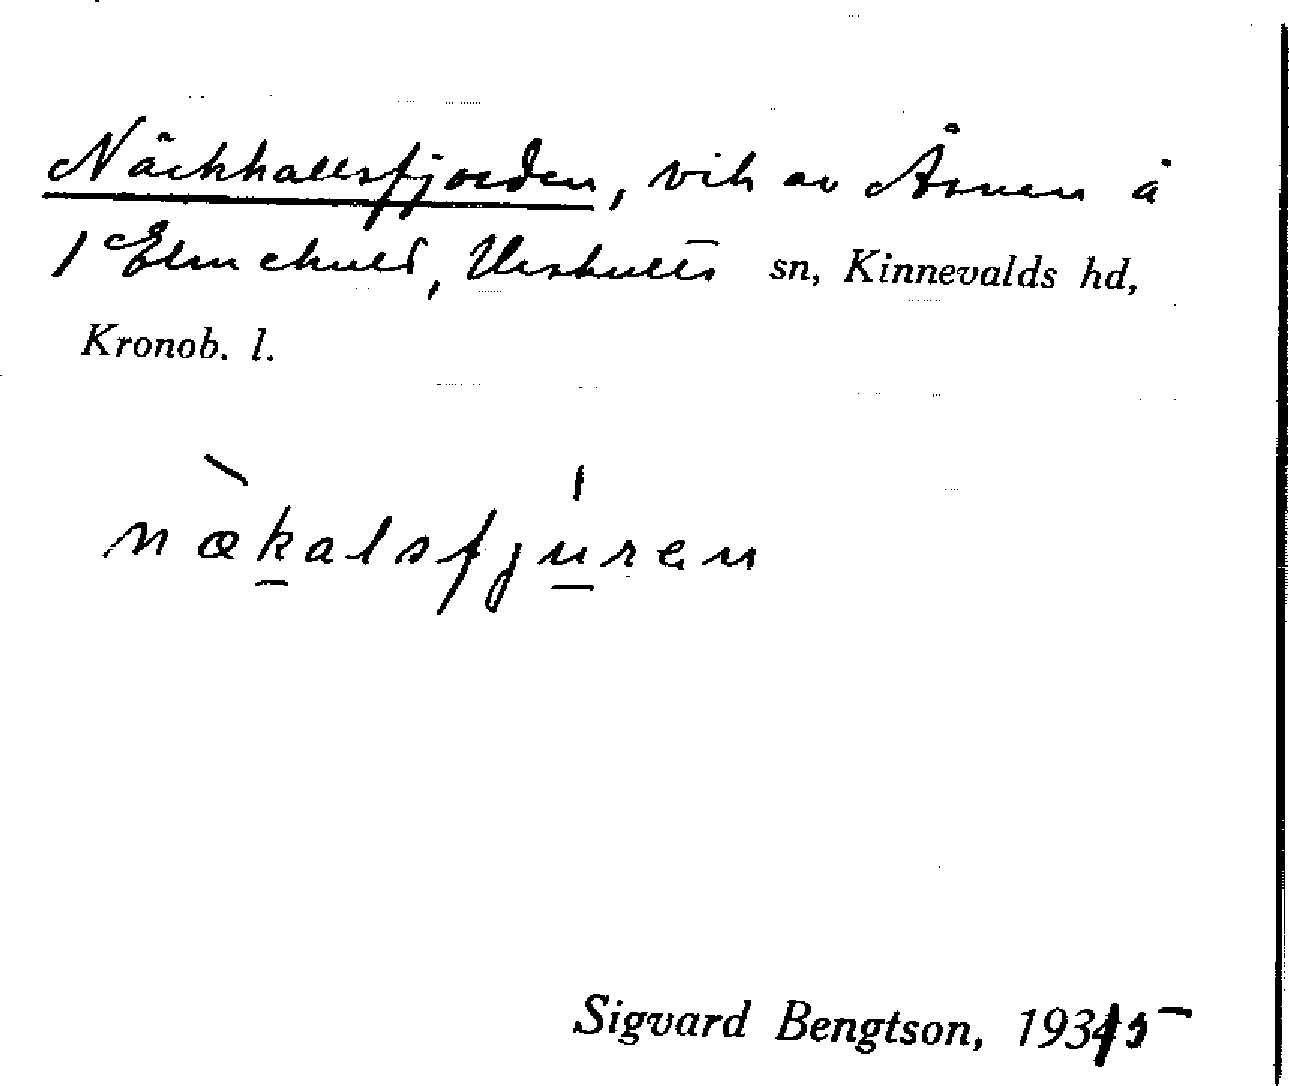 Näckhallsfjorden, vik av Åsnen å
1 Elmehult, Urshults sn, Kinnevalds hd,
Kronob. l.
nækalsfjuren
Sigvard Bengtson, 1935